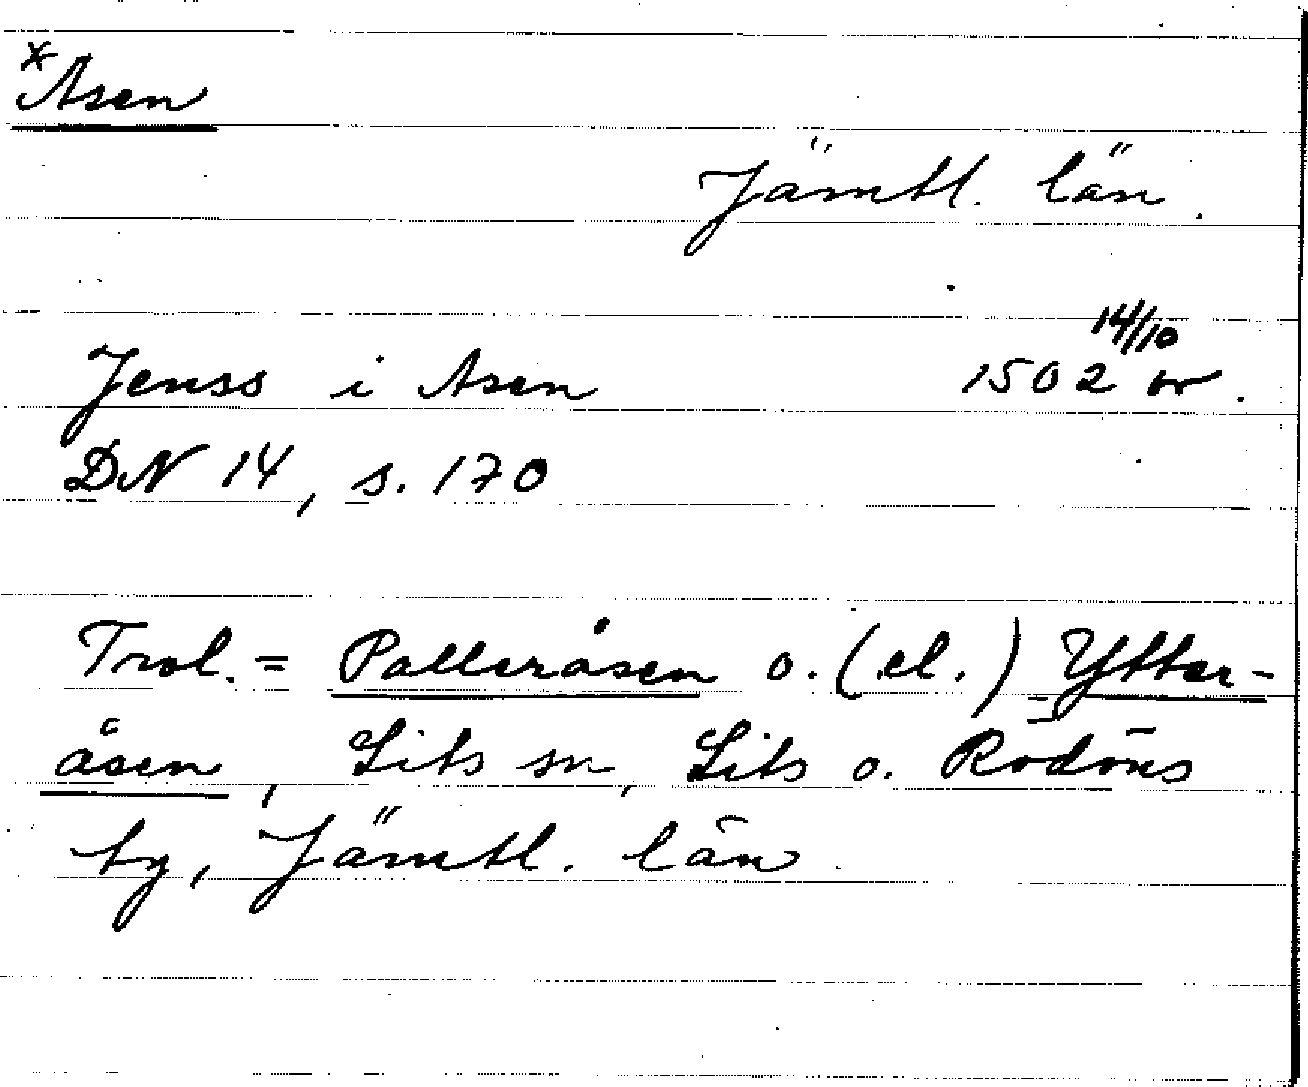 *Asen
Jämtl. län.
14/10
Jenss i Asen 1502 or.
DN 14, s. 170
Trol. = Palleråsen o. (el.) Ytter-
åsen, Lits sn, Lits o. Rödöns
tg, Jämtl. län